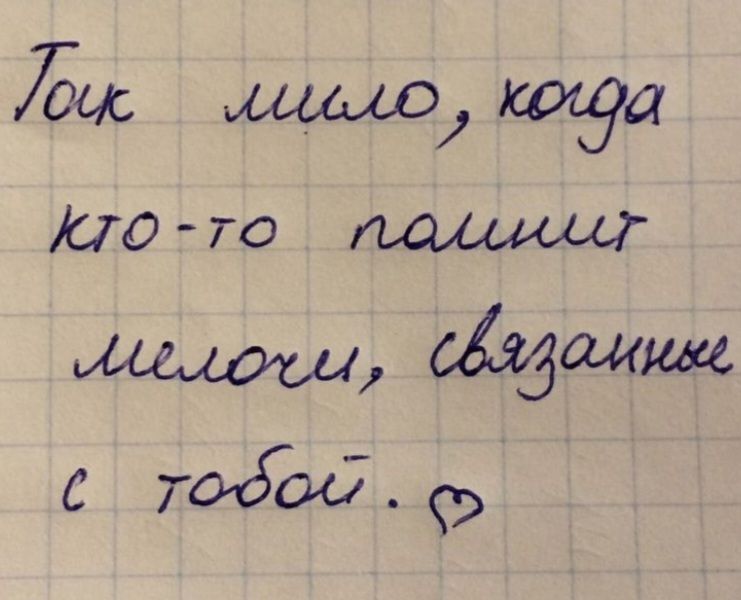 Так мило, когда
кто-то помнит
мелочи, связанные
с тобой. ♡